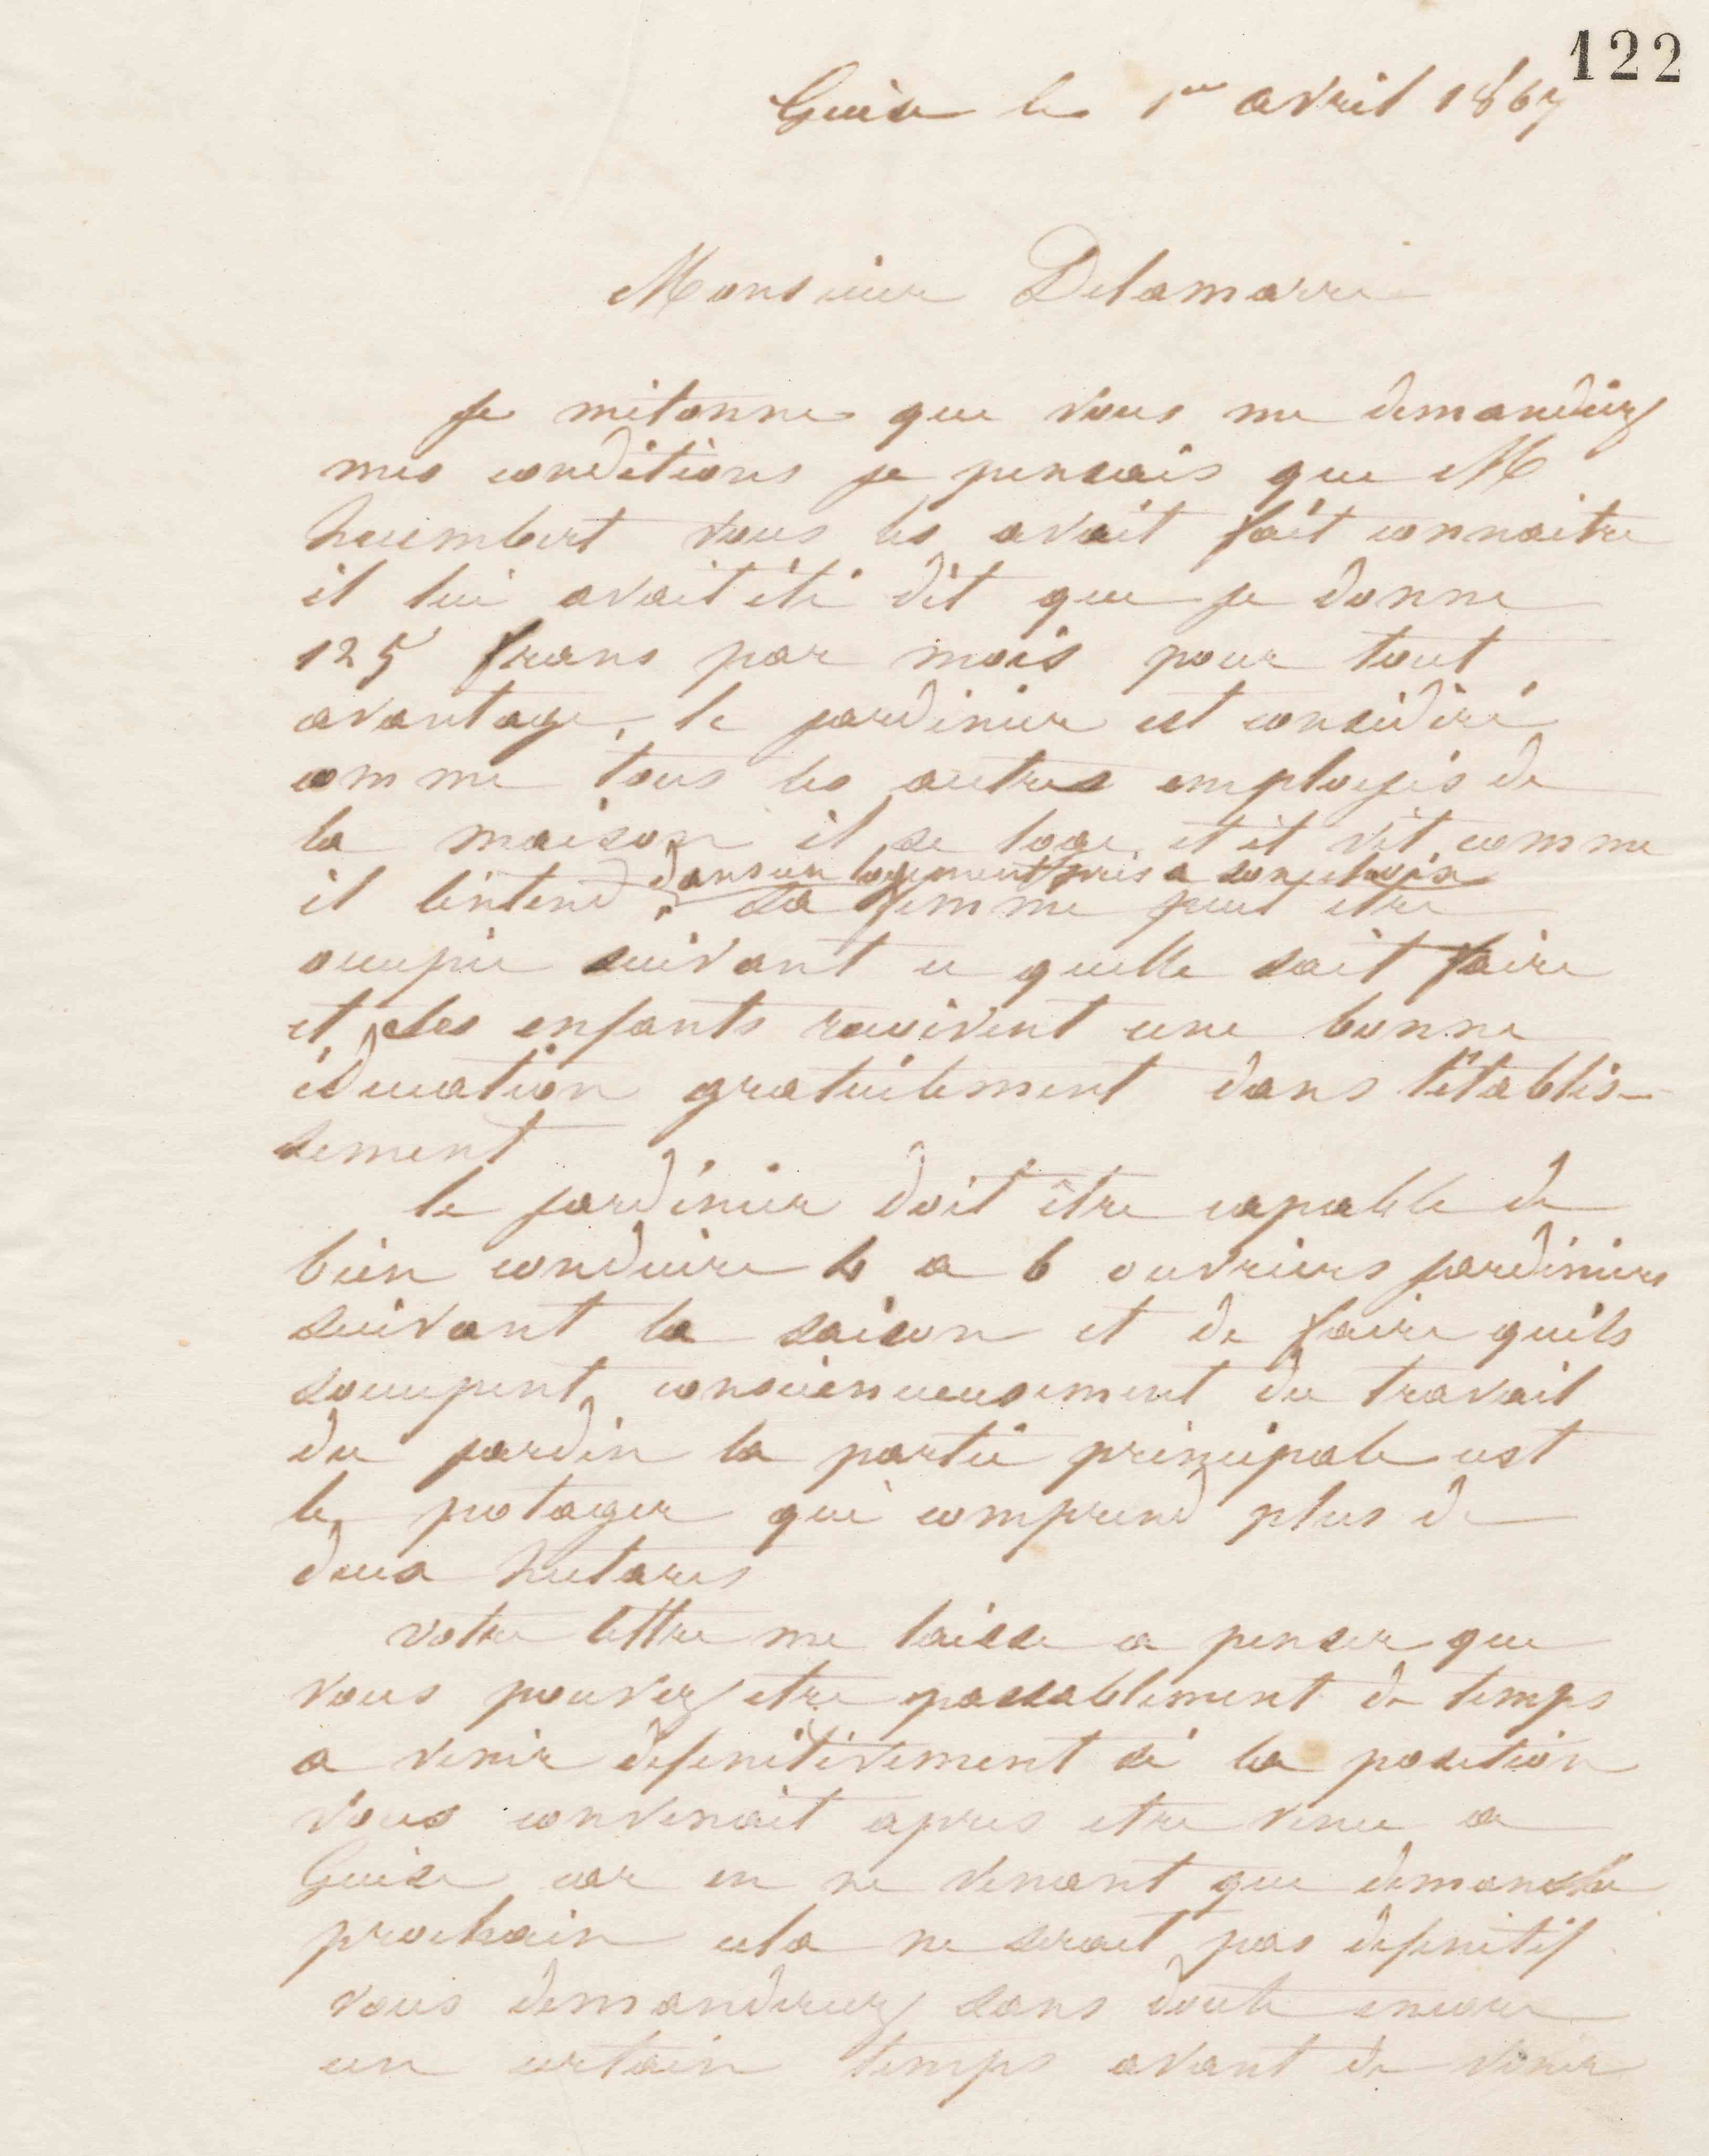 122
Guise le 1er avril 1867
Monsieur Delamarre
Je métonne que vous me demandiez
mes conditions je pensais que M
humbert vous les avait fait connaitre
il lui avait été dit que je donne
125 frans par mois pour tout
avantage, le jardinier est considéré
comme tous les autres employés de
la maison il se loge et il vit comme
dans un logement pris a son choix
il lentend. Sa femme peut etre
occupée suivant ce quelle sait faire
et les enfants reçoivent une bonne
éducation gratuitement dans létablis-
sement
le jardinier doit être capable de
bien conduire 4 a 6 ouvriers jardiniers
suivant la saison et de faire quils
soccupent consciencieusement du travail
du jardin la partie principale est
le potager qui comprend plus de
deux hectares
votre lettre me laisse a penser que
vous pouvez etre passablement de temps
a venir définitivement si la position
vous convenait apres etre venu a
Guise car en ne venant que dimanche
prochain cela ne serait pas définitif
vous demanderiez sans doute encore
un certain temps avant de venir